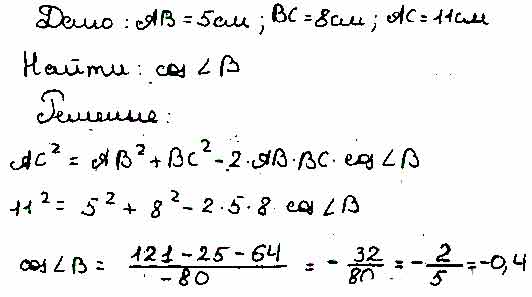 Дано: AB = 5см; BC = 8см; AC = 11см
Найти: cos ∠B
Решение:
AC² = AB² + BC² - 2·AB·BC·cos∠B
11² = 5² + 8² - 2·5·8 cos∠B
cos∠B = (121 - 25 - 64)/(-80) = -32/80 = -2/5 = -0,4